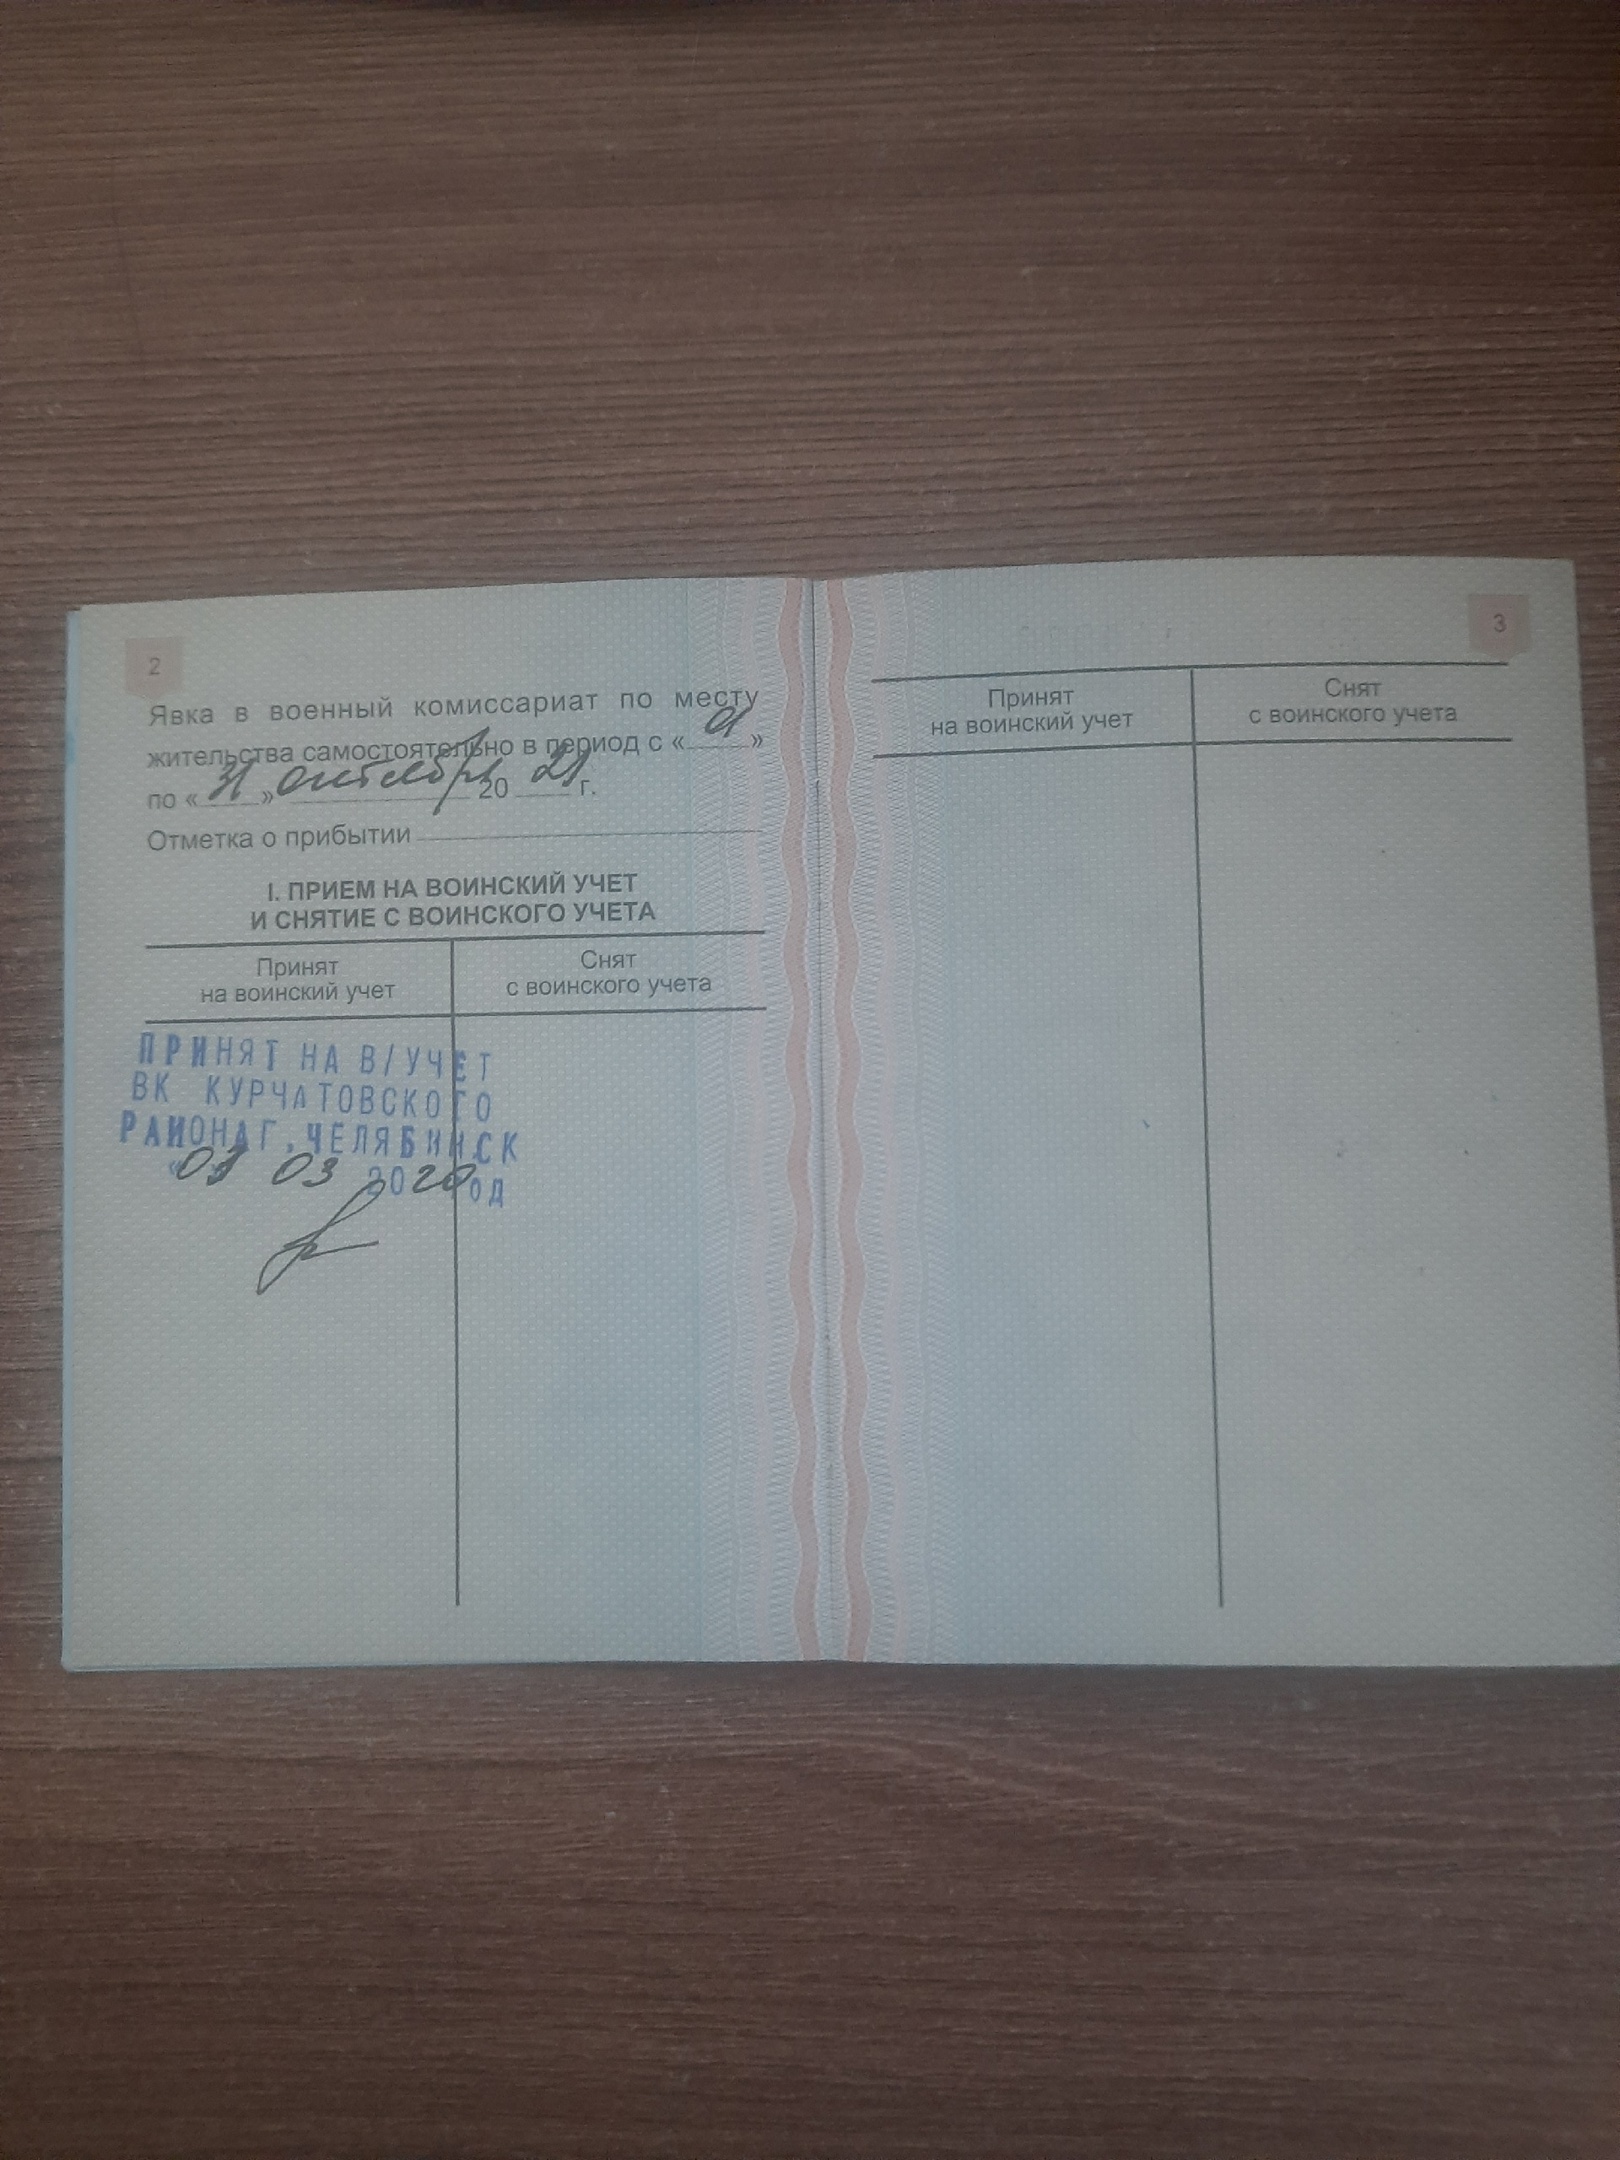 2
Явка в военный комиссариат по месту
жительства самостоятельно в период с « 01 »
по « 31 » октября 20 21 г.
Отметка о прибытии
I. ПРИЕМ НА ВОИНСКИЙ УЧЕТ
И СНЯТИЕ С ВОИНСКОГО УЧЕТА
Принят
на воинский учет
Снят
с воинского учета
ПРИНЯТ НА В/УЧЕТ
ВК КУРЧАТОВСКОГО
РАЙОНА Г. ЧЕЛЯБИНСК
03 2020 год
3
Принят
на воинский учет
Снят
с воинского учета